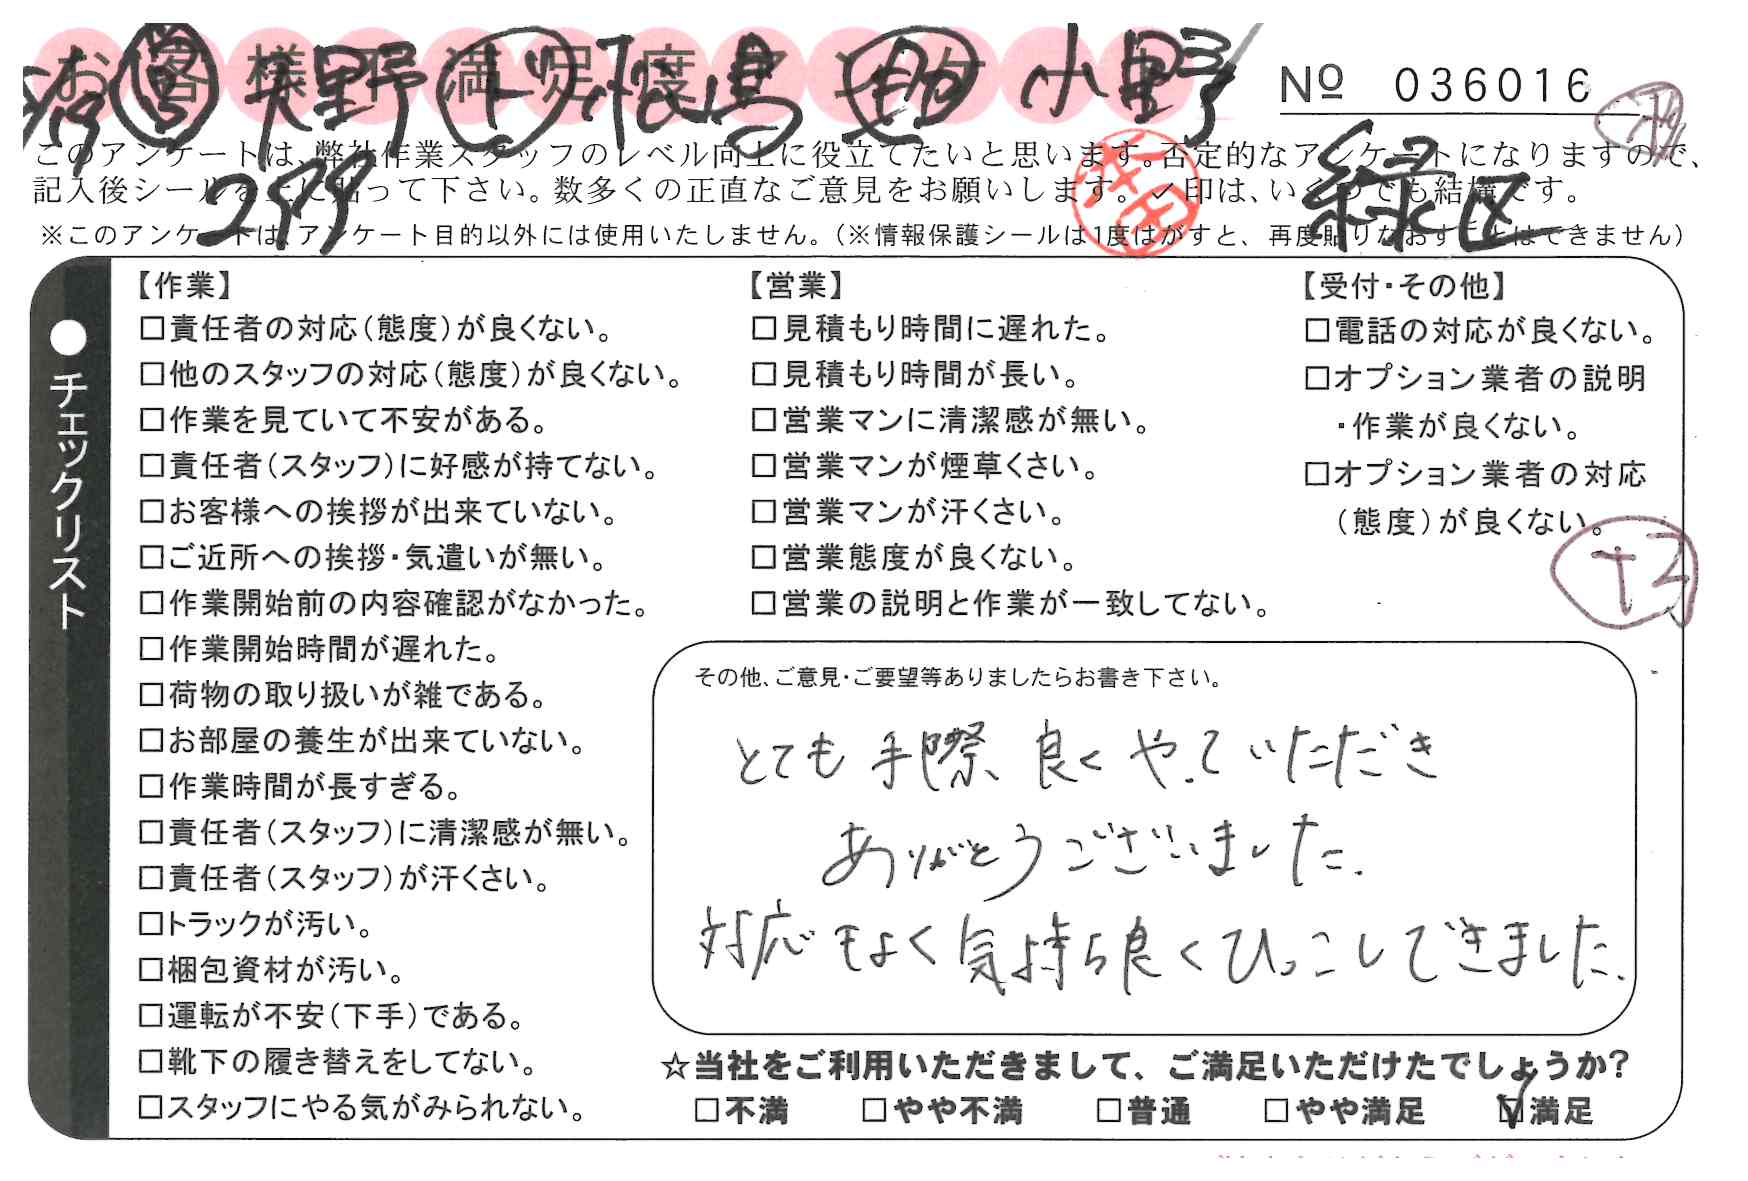 お客様不満足度アンケート
矢野 長島 小野
№ 036016
このアンケートは、弊社作業スタッフのレベル向上に役立てたいと思います。否定的なアンケートになりますので、
記入後シールを上に貼って下さい。数多くの正直なご意見をお願いします。✓印は、いくつでも結構です。
299 緑区
※このアンケートは、アンケート目的以外には使用いたしません。(※情報保護シールは1度はがすと、再度貼りなおすことはできません)
●チェックリスト
【作業】
□責任者の対応(態度)が良くない。
□他のスタッフの対応(態度)が良くない。
□作業を見ていて不安がある。
□責任者(スタッフ)に好感が持てない。
□お客様への挨拶が出来ていない。
□ご近所への挨拶・気遣いが無い。
□作業開始前の内容確認がなかった。
□作業開始時間が遅れた。
□荷物の取り扱いが雑である。
□お部屋の養生が出来ていない。
□作業時間が長すぎる。
□責任者(スタッフ)に清潔感が無い。
□責任者(スタッフ)が汗くさい。
□トラックが汚い。
□梱包資材が汚い。
□運転が不安(下手)である。
□靴下の履き替えをしてない。
□スタッフにやる気がみられない。
【営業】
□見積もり時間に遅れた。
□見積もり時間が長い。
□営業マンに清潔感が無い。
□営業マンが煙草くさい。
□営業マンが汗くさい。
□営業態度が良くない。
□営業の説明と作業が一致してない。
【受付・その他】
□電話の対応が良くない。
□オプション業者の説明
・作業が良くない。
□オプション業者の対応
(態度)が良くない。
その他、ご意見・ご要望等ありましたらお書き下さい。
とても手際良くやっていただき
ありがとうございました.
対応もよく気持ち良くひっこしできました.
☆当社をご利用いただきまして、ご満足いただけたでしょうか?
□不満 □やや不満 □普通 □やや満足 ☑満足